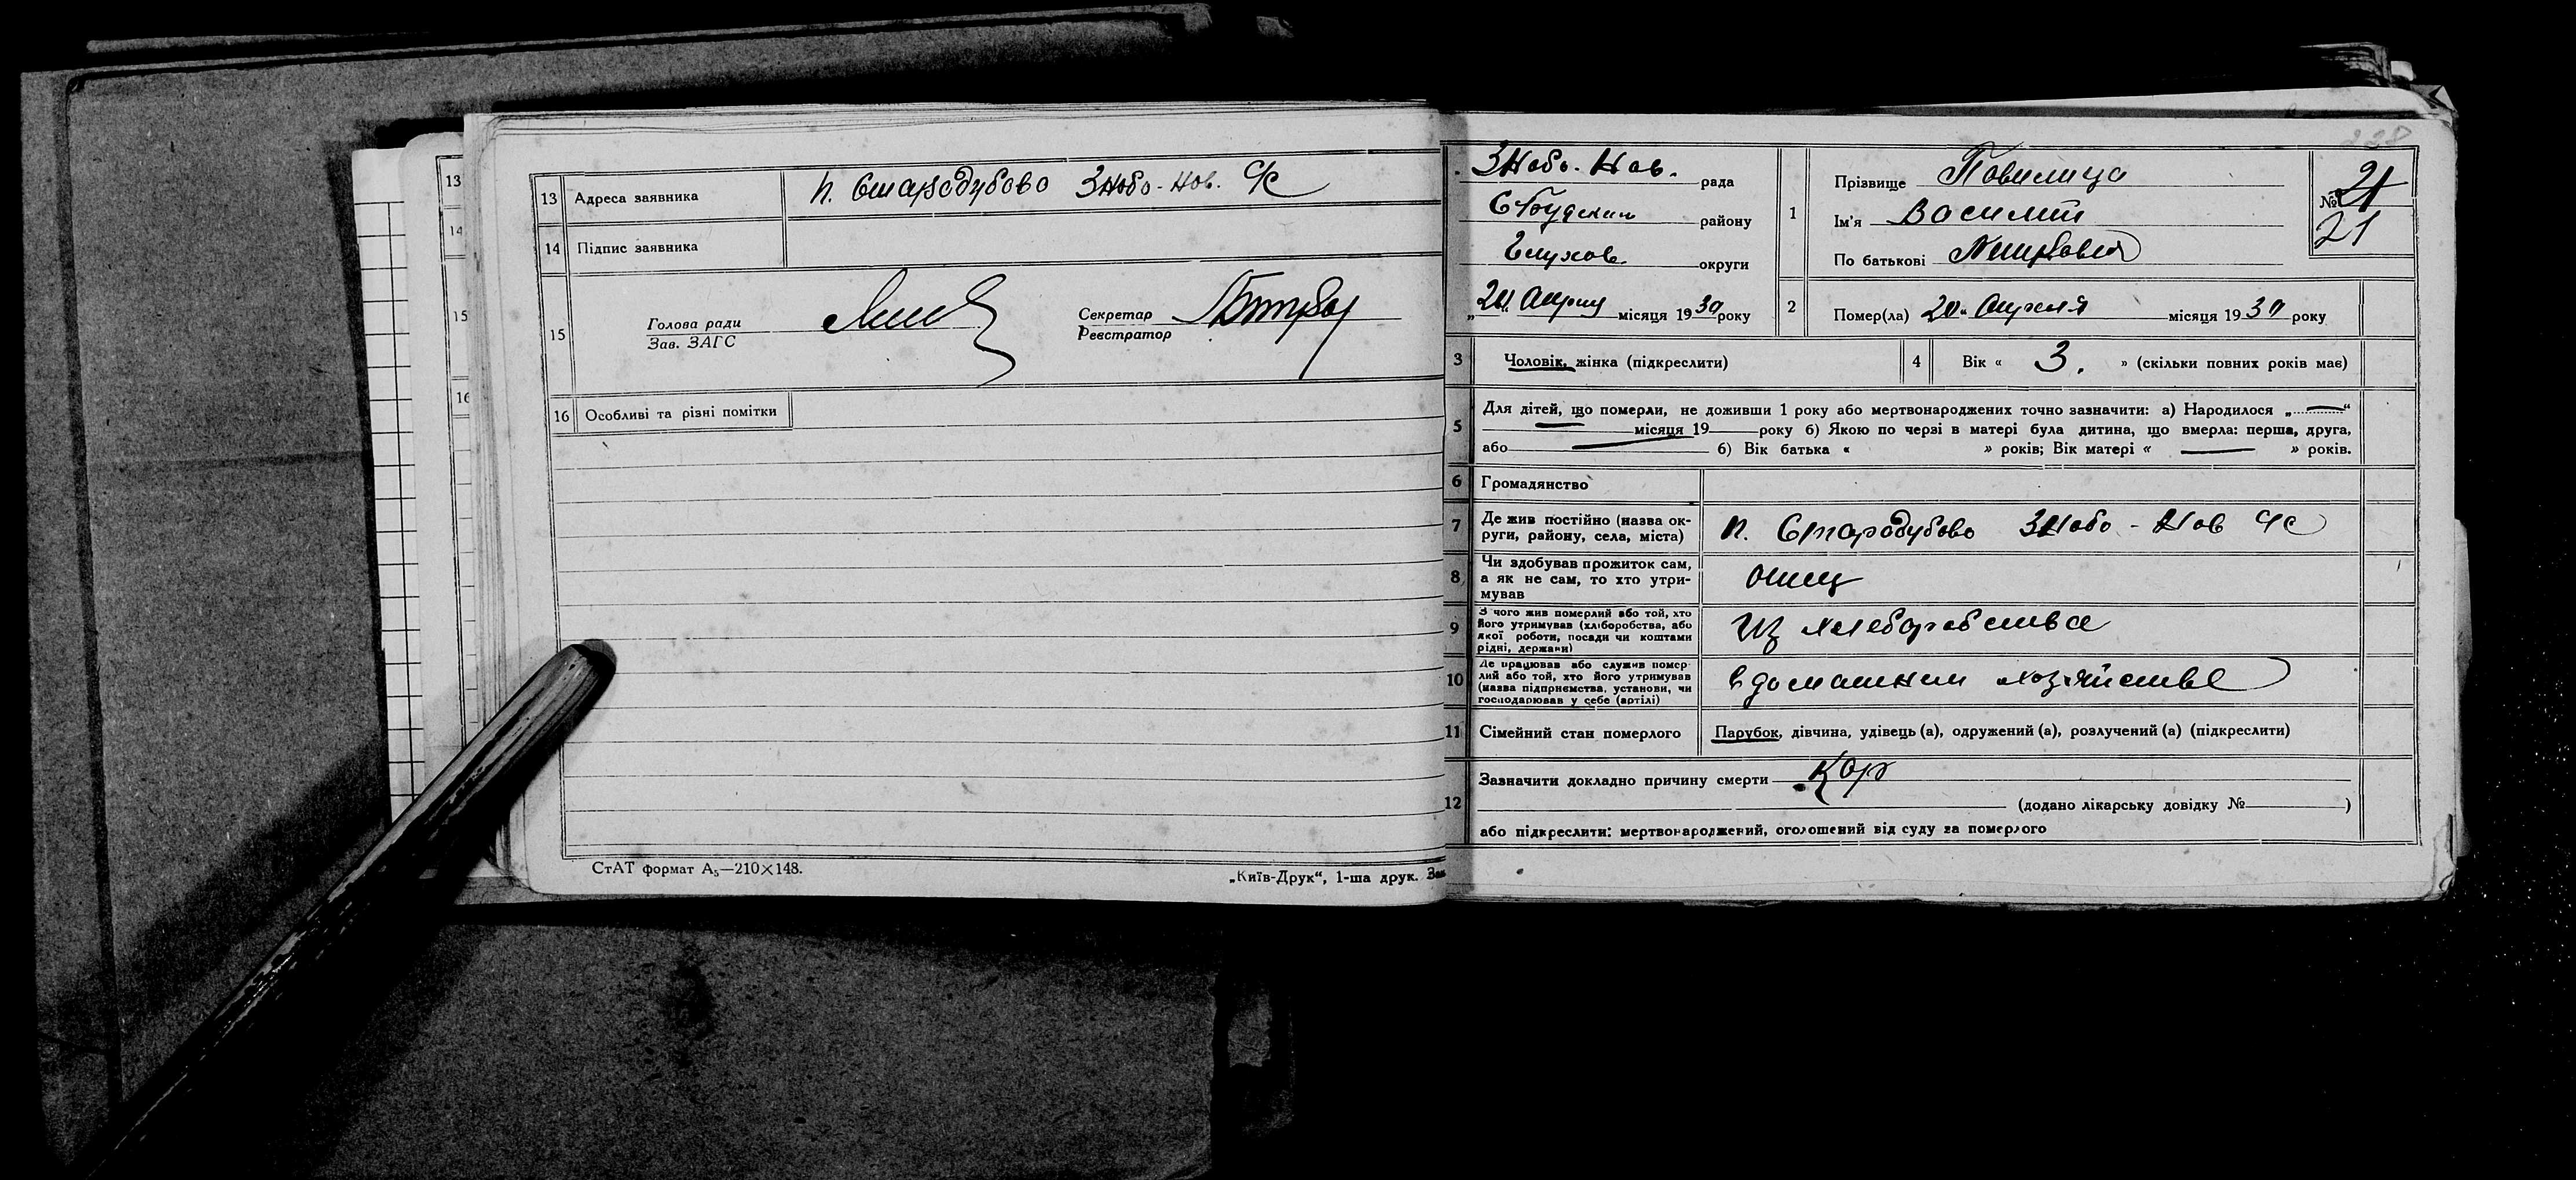 13 Адреса заявника п. Стародубово Знобо-Нов. С/с
14 Підпис заявника
15 Голова ради
Зав. ЗАГС
Секретар
Реєстратор
16 Особливі та різні помітки
СтАТ формат А₅—210×148.
„Київ-Друк“, 1-ша друк. Зам
13
14
15
16
238
Знобо-Нов. рада
С Будский району
Глухов. округи
„21“ Апреля місяця 1930 року
1 Прізвище Повилица
Ім'я Василий
По батькові
№ 21
21
2 Помер(ла) 20 Апреля місяця 1930 року
3 Чоловік, жінка (підкреслити)
4 Вік « 3. » (скільки повних років має)
5 Для дітей, що померли, не доживши 1 року або мертвонароджених точно зазначити: а) Народилося „—“
місяця 19 року б) Якою по черзі в матері була дитина, що вмерла: перша, друга,
або б) Вік батька « » років; Вік матері « — » років.
6 Громадянство
7 Де жив постійно (назва ок-
руги, району, села, міста) п. Стародубово Знобо-Нов С/с
8 Чи здобував прожиток сам,
а як не сам, то хто утри-
мував отец
9 З чого жив померлий або той, хто
його утримував (хліборобства, або
якої роботи, посади чи коштами
рідні, держави) Из хлеборобства
10 Де працював або служив помер-
лий або той, хто його утримував
(назва підприємства, установи, чи
господарював у себе (артілі) в домашнем хозяйстве
11 Сімейний стан померлого Парубок, дівчина, удівець (а), одружений (а), розлучений (а) (підкреслити)
12 Зазначити докладно причину смерти Кор
(додано лікарську довідку № )
або підкреслити: мертвонароджений, оголошений від суду за померлого